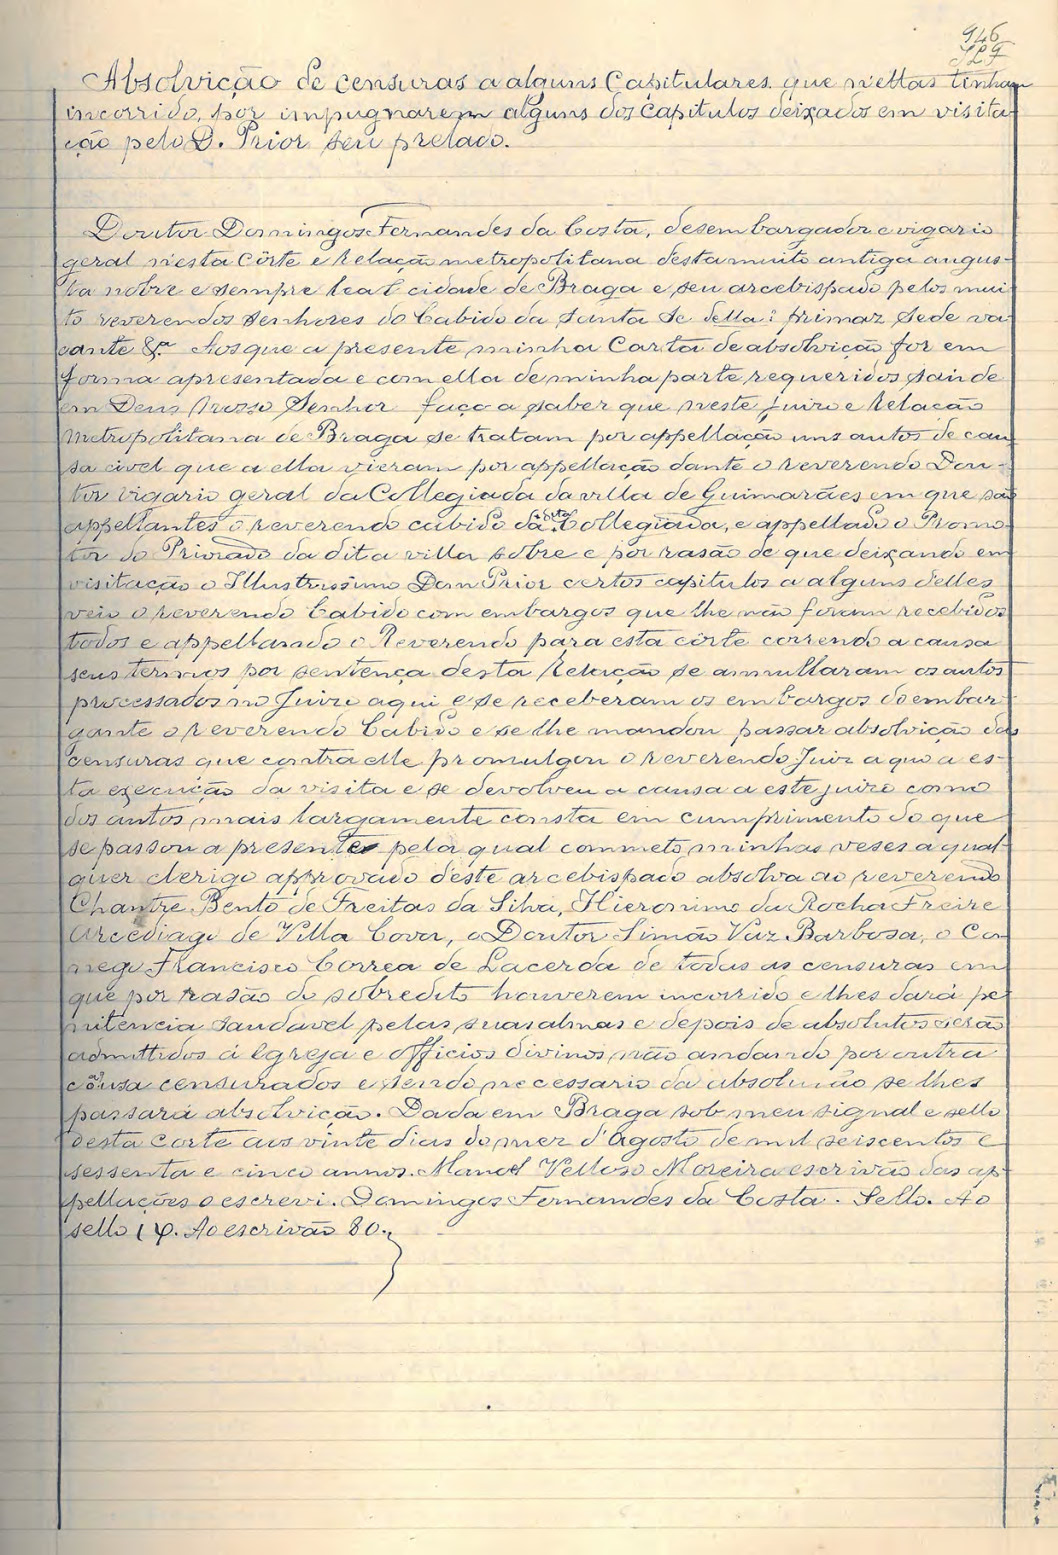 946
Absolvição de censuras a alguns Capitulares que n'ellas tinham
incorrido, por impugnarem alguns dos Capitulos deixados em visita-
ção pelo D. Prior seu prelado.
Doutor Domingos Fernandes da Costa, desembargador e vigario
geral n'esta Côrte e Relação metropolitana desta muito antiga augus-
ta nobre e sempre leal cidade de Braga e seu arcebispado pelos mui-
to reverendos Senhores do Cabido da Santa Se della: primaz Sede va-
cante &.ª Aos que a presente minha Carta de absolvição for em
forma apresentada e com ella de minha parte requeridos saude
em Deus Nosso Senhor faço a saber que neste juizo e Relação
Metropolitana de Braga se tratam por appellação uns autos de cau-
sa civel que a ella vieram por appellação dante o reverendo Dou-
tor vigario geral da Collegiada da villa de Guimarães em que são
appellantes o reverendo cabido da dita Collegiada, e appellado o Promo-
tor do Priorado da dita villa sobre e por rasão de que deixando em
visitação o Illustrissimo Dom Prior certos capitulos a alguns delles
veio o reverendo Cabido com embargos que lhe não foram recebidos
todos e appellando o Reverendo para esta côrte correndo a causa
seus termos por sentença desta Relação se annullaram os autos
processados no Juizo aqui e se receberam os embargos do embar-
gante o reverendo Cabido e se lhe mandou passar absolvição das
censuras que contra elle promulgou o reverendo Juiz a quo a es-
ta execução da visita e se devolveu a causa a este juizo como
dos autos mais largamente consta em cumprimento do que
se passou a presente pela qual commeto minhas veses a qual-
quer clerigo approvado d'este arcebispado absolva ao reverendo
Chantre Bento de Freitas da Silva, Hieronimo da Rocha Freire
Arcediago de Villa Cova, o Doutor Simão Vaz Barbosa, o Co-
nego Francisco Corrêa de Lacerda de todas as censuras em
que por rasão do sobredito houverem incorrido e lhes dará pe-
nitencia saudavel pelas suas almas e depois de absolutos serão
admittidos á Egreja e officios divinos não andando por outra
causa censurados e sendo necessario da absolvição se lhes
passará absolvição. Dada em Braga sob meu signal e sello
desta Corte aos vinte dias do mez d'Agosto de mil seiscentos e
sessenta e cinco annos. Manoel Velloso Moreira escrivão das ap-
pellações o escrevi. Domingos Fernandes da Costa. Sello. Ao
sello Ao escrivão 80.